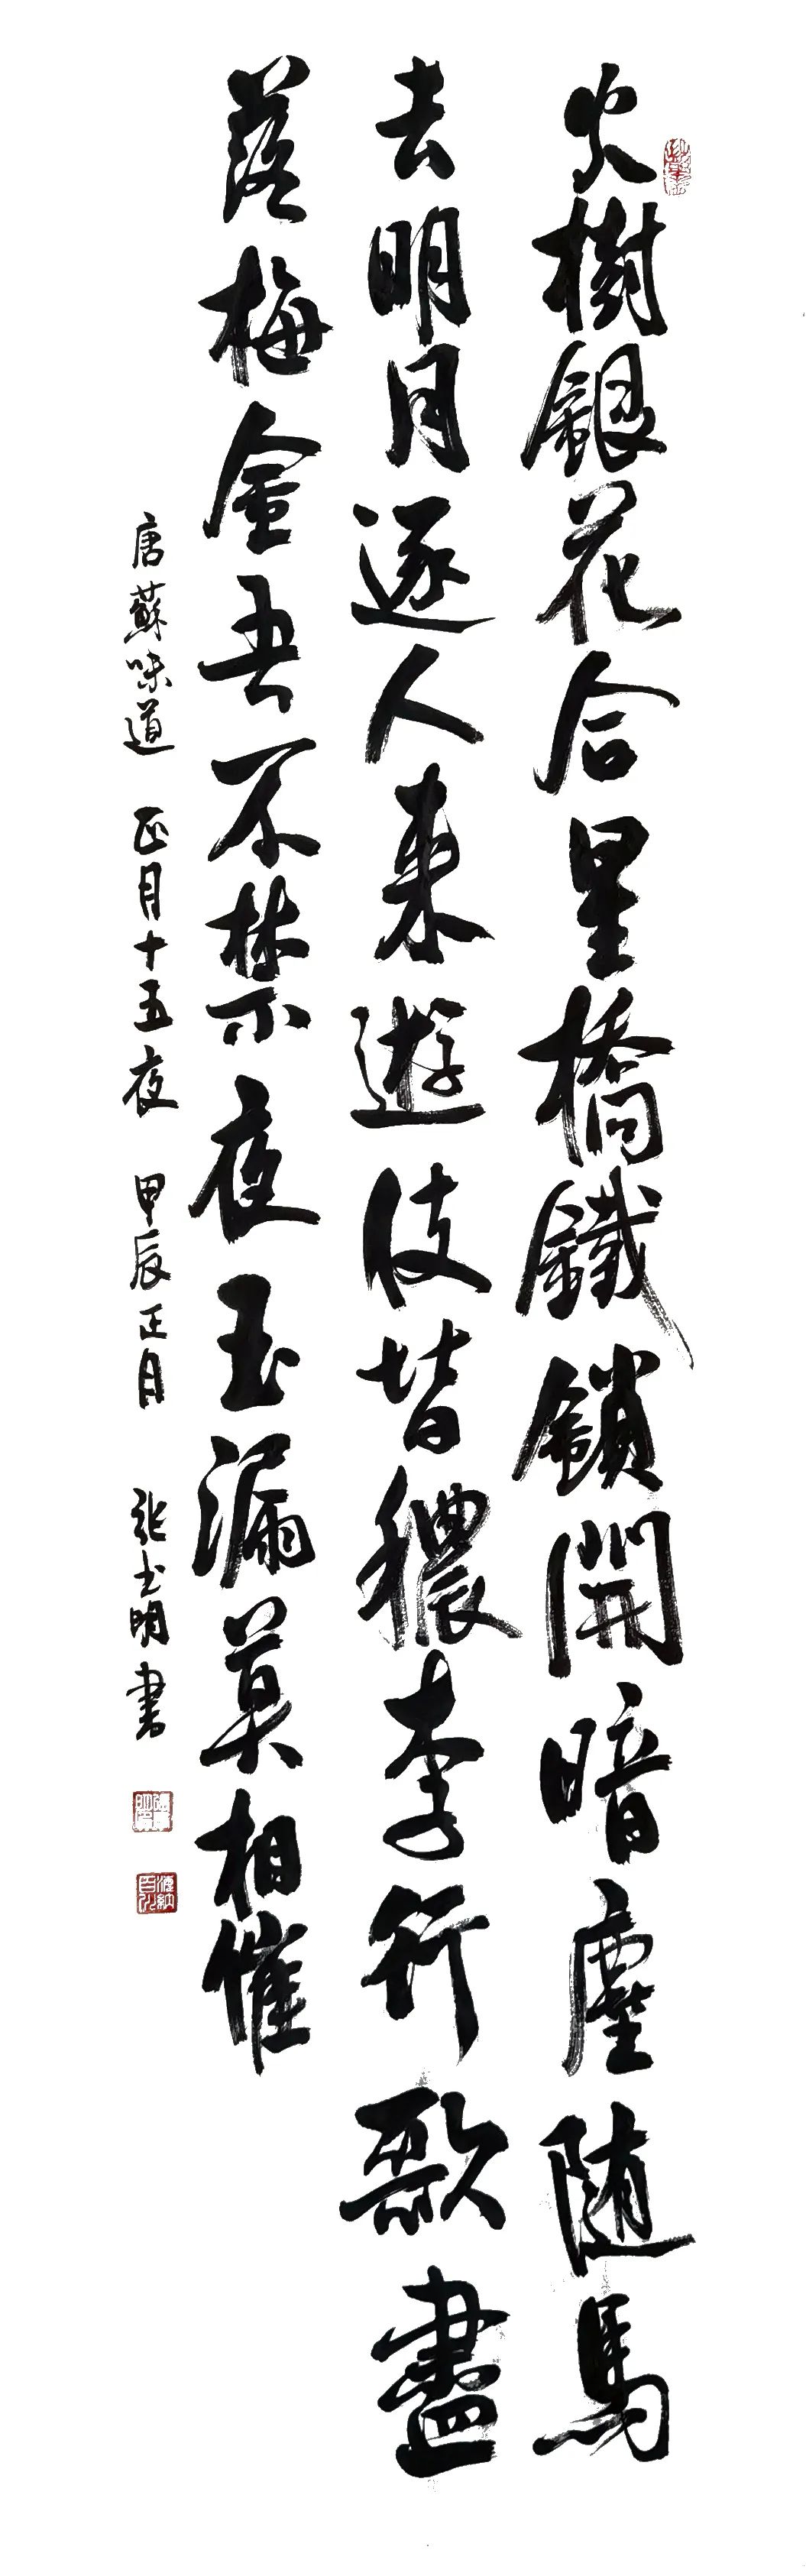 火樹銀花合星橋鐵鎖開暗塵随馬
去明月逐人来遊伎皆穠李行歌盡
落梅金吾不禁夜玉漏莫相催
唐蘇味道 正月十五夜 甲辰正月 張書明書